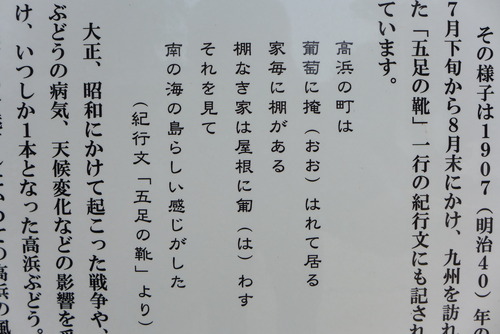 その様子は1907（明治40）年の
7月下旬から8月末にかけ、九州を訪れ
た「五足の靴」一行の紀行文にも記され
ています。
高浜の町は
葡萄に掩（おお）はれて居る
家毎に棚がある
棚なき家は屋根に匍（は）わす
それを見て
南の海の島らしい感じがした
（紀行文「五足の靴」より）
大正、昭和にかけて起こった戦争や、
ぶどうの病気、天候変化などの影響を受
け、いつしか1本となった高浜ぶどう。
の高浜の風